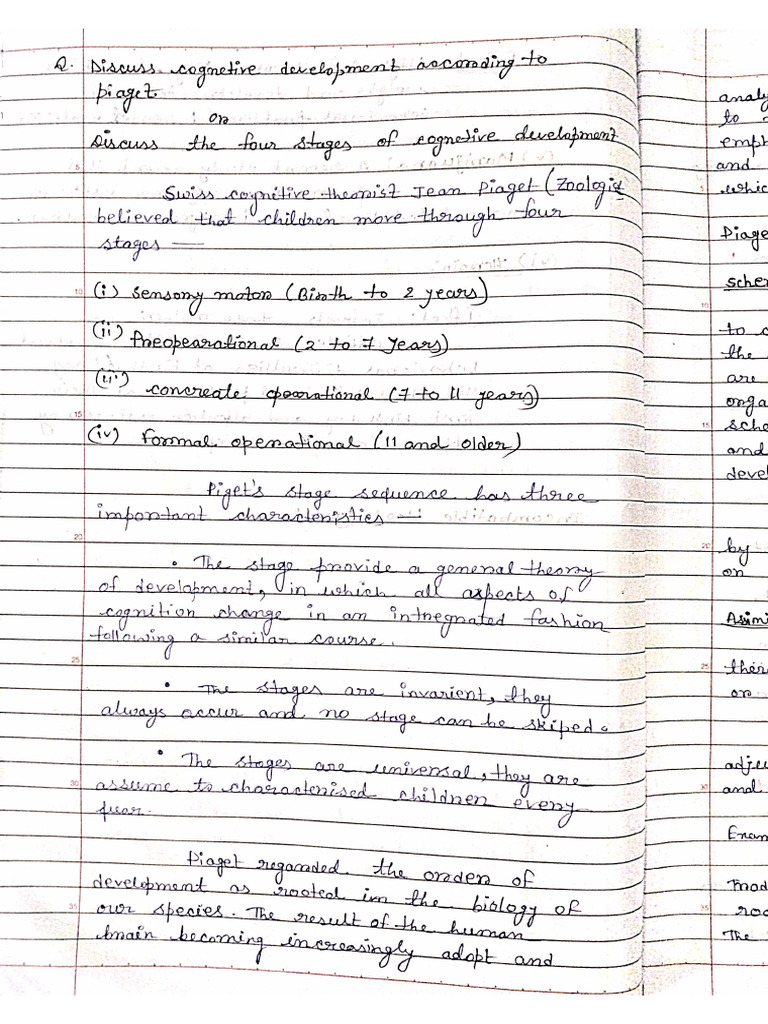 Q. Discuss cognetive development according to
piaget.
or
Discuss the four stages of cognetive development
Swiss cognitive theorist Jean Piaget (Zoologist
believed that children move through four
stages —
(i) Sensory motor (Birth to 2 years)
(ii) Preopearational (2 to 7 Years)
(iii) concreate opearational (7 to 11 years)
(iv) Formal operational (11 and older)
Piget's stage sequence has three
important characteristics —
• The stage provide a general theory
of development, in which all aspects of
cognition change in an intnegnated fashion
following a similar course.
• The stages are invarient, they
always occur and no stage can be skiped.
• The stages are universal, they are
assume to characterised children every
Piaget reganded the order of
development as rooted in the biology of
our species. The result of the human
brain becoming increasingly adopt and
analy
to
emph
and
which
Piage
Sche
to c
the
are
orga
sche
and
devel
by
on
Assimi
ther
or
adju
and
Exam
roo
The